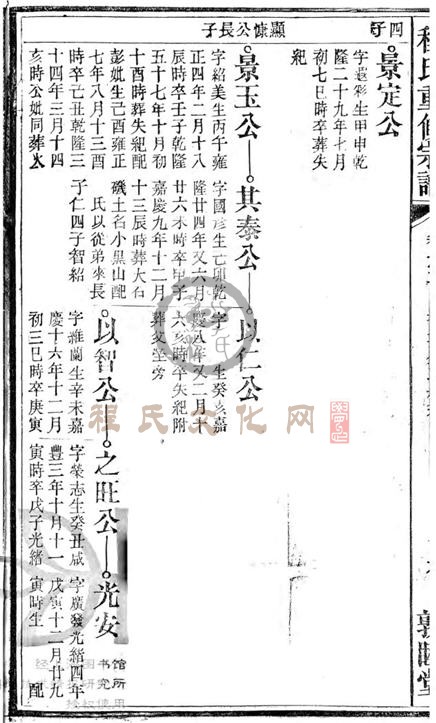 程氏重修宗譜
敦睦堂
四子
顯慷公長子
景定公
字選彩生甲申乾
隆二十九年七月
初七巳時卒葬失
紀
景玉公
字紹美生丙午雍
正四年二月十八
辰時卒壬子乾隆
五十七年十月初
十酉時葬失紀配
彭妣生己酉雍正
七年八月十三酉
時卒己丑乾隆三
十四年三月十四
亥時公妣同葬火
其泰公
字國彥生己卯乾
隆廿四年又六月
廿六未時卒甲子
嘉慶九年十二月
十三辰時葬大石
磯土名小黑山配
氏以從弟來長
子仁四子智紹
以仁公
字 生癸亥嘉
慶八年又二月十
六亥時卒失紀附
葬父塋旁
以智公
字維蘭生辛未嘉
慶十六年十二月
初三巳時卒庚寅
之旺公
字榮志生癸丑咸
豐三年十月十一
寅時卒戊子光緒
光安
字廣發光緒四年
戊寅十二月廿九
寅時生 配
程氏文化网
书馆
研究所
使用